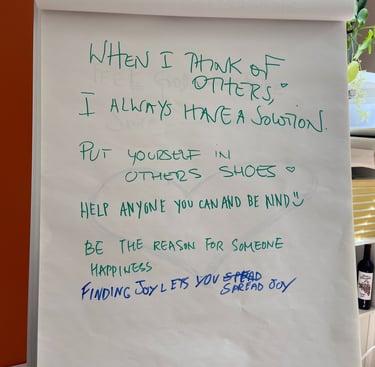 WHEN I THINK OF
OTHERS,
I ALWAYS HAVE A SOLUTION.
PUT YOURSELF IN
OTHERS SHOES
HELP ANYONE YOU CAN AND BE KIND
BE THE REASON FOR SOMEONE
HAPPINESS
FINDING JOY LETS YOU
SPREAD JOY